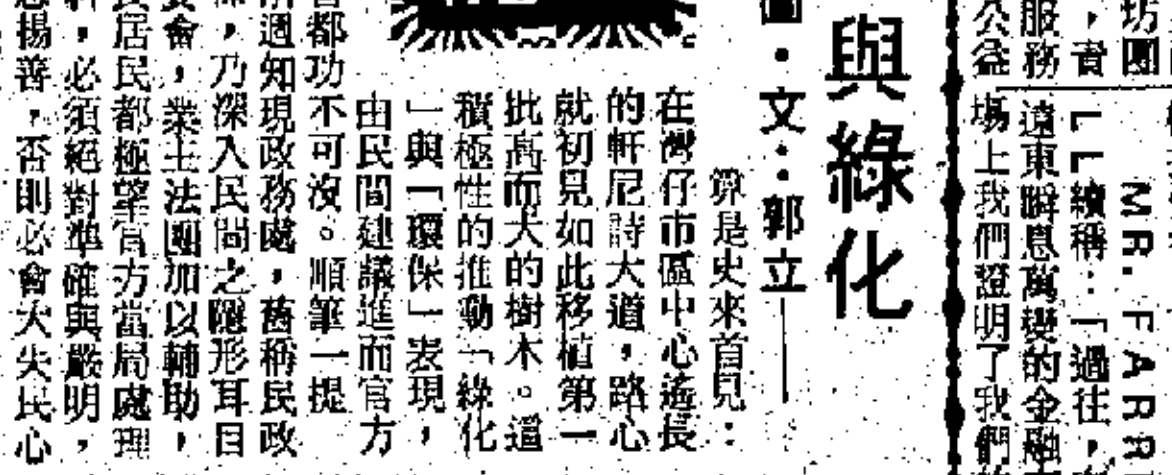 坊團
，責
服務
公益
MR. FARR
LL續稱：「過往，
遠東瞬息萬變的金融
場上我們證明了我們
與綠化
圖・文：郭立
算是史來首見：
在灣仔市區中心遙長
的軒尼詩大道，路心
就初見如此移植第一
批高而大的樹木。這
積極性的推動「綠化
」與「環保」表現，
由民間建議進而官方
都功不可沒。順筆一提
週知現政務處，舊稱民政
，乃深入民間之隱形耳目
會，業主法團加以輔助，
居民都極望官方當局處理
，必須絕對準確與嚴明，
揚善，否則必會大失民心